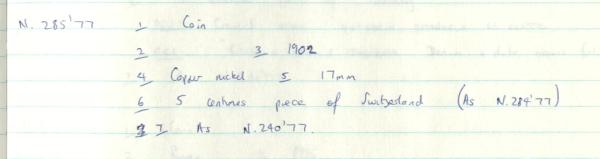 N. 285'77 1 Coin
2 3 1902
4 Copper nickel 5 17mm
6 5 centimes piece of Switzerland (As N.284'77)
7 As N.240'77.